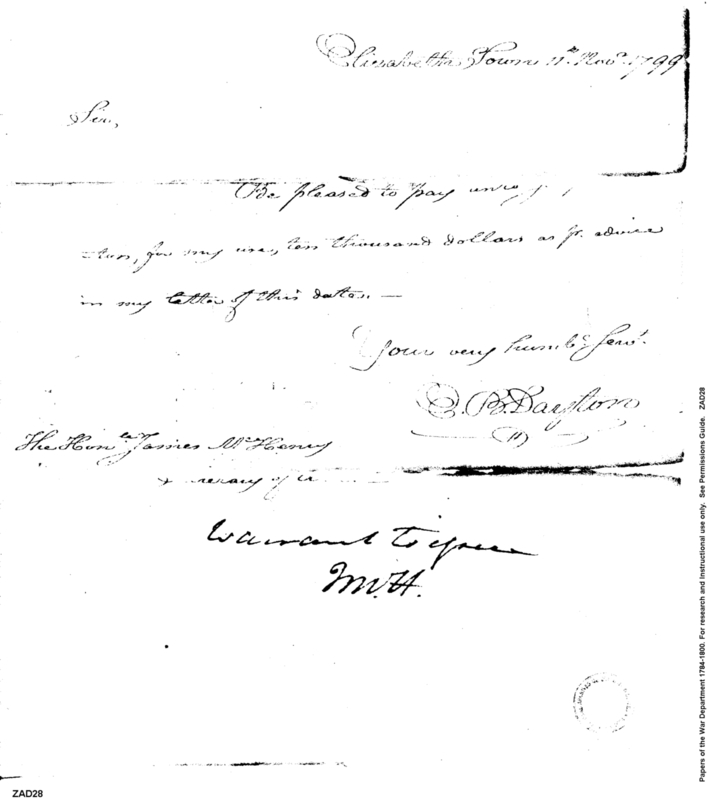 Elizabeth Town 11th Novr. 1799
Sir,
Be pleased to pay
for my use, ten thousand dollars as pr. advice
in my letter of this date. —
Your very humble. Servt.
E. B. Dayton
The Honble James McHenry
of
Warrant to issue
J McH.
ZAD28
Papers of the War Department 1784-1800. For research and instructional use only. See Permissions Guide. ZAD28